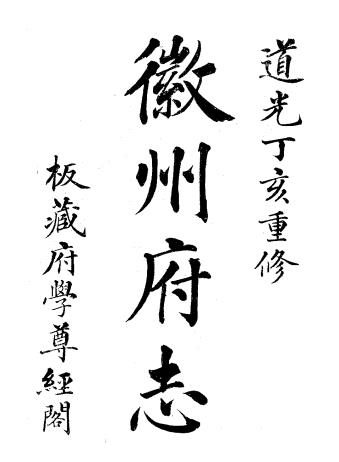 道光丁亥重修
徽州府志
板藏府學尊經閣